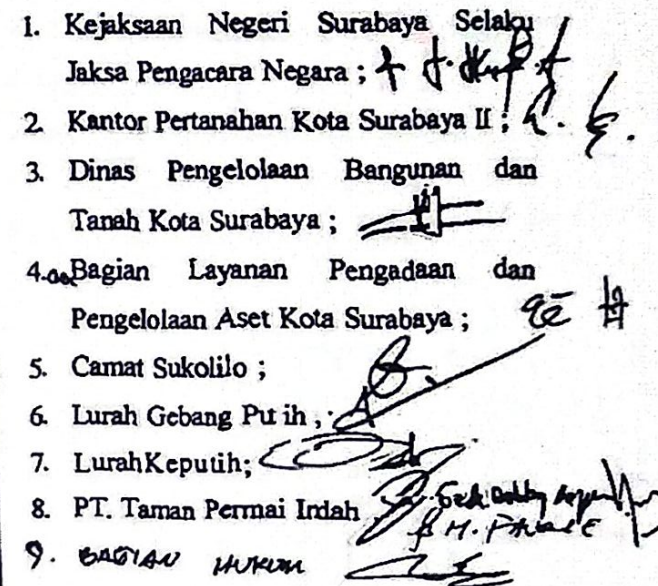 1. Kejaksaan Negeri Surabaya Selaku
Jaksa Pengacara Negara ;
2. Kantor Pertanahan Kota Surabaya II ;
3. Dinas Pengelolaan Bangunan dan
Tanah Kota Surabaya ;
4. Bagian Layanan Pengadaan dan
Pengelolaan Aset Kota Surabaya ;
5. Camat Sukolilo ;
6. Lurah Gebang Put ih ,
7. LurahKeputih;
8. PT. Taman Permai Indah
9. BAGIAN HUKUM